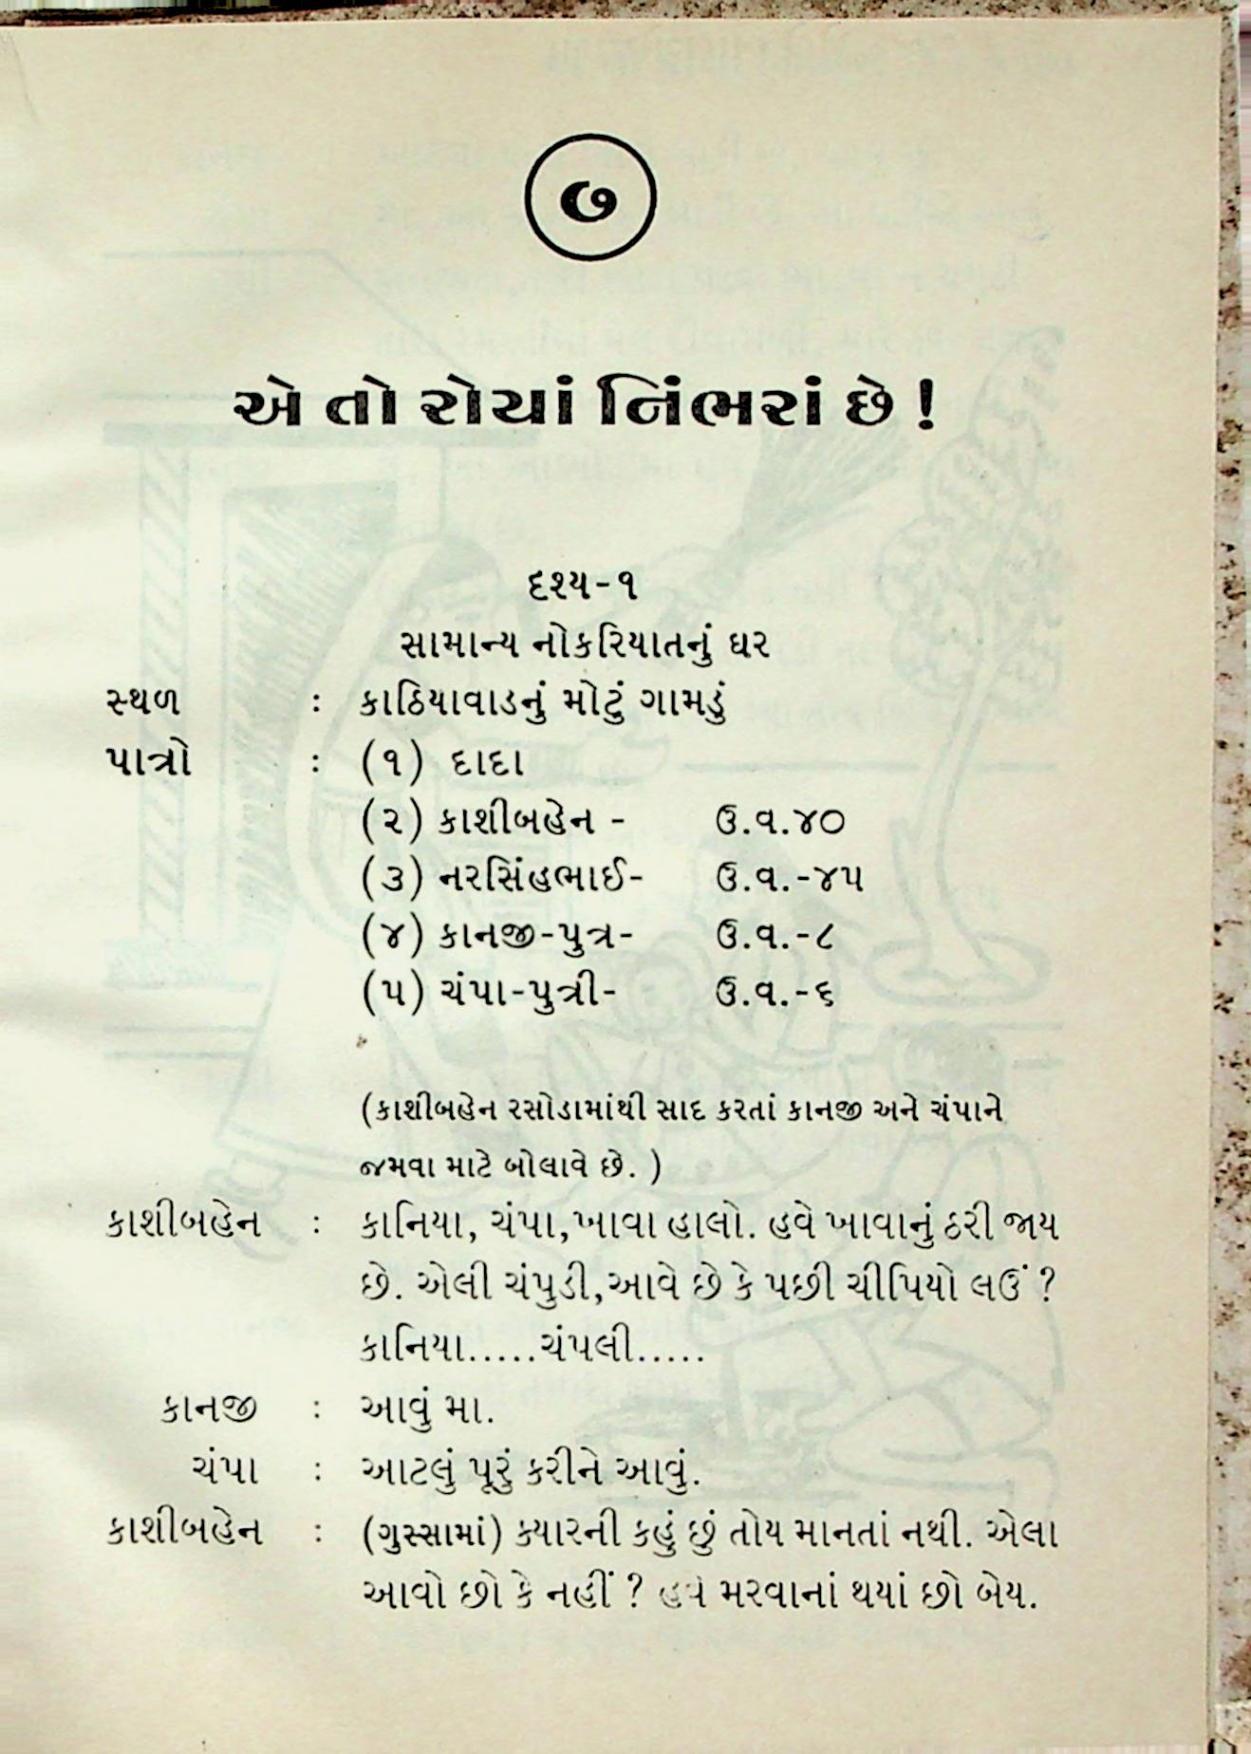 ૭
એ તો રોયાં નિંભરાં છે !
દૃશ્ય-૧
સામાન્ય નોકરિયાતનું ઘર
સ્થળ : કાઠિયાવાડનું મોટું ગામડું
પાત્રો : (૧) દાદા
(૨) કાશીબહેન - ઉ.વ.૪૦
(૩) નરસિંહભાઈ- ઉ.વ.-૪૫
(૪) કાનજી-પુત્ર- ઉ.વ.-૮
(૫) ચંપા-પુત્રી- ઉ.વ.-૬
(કાશીબહેન રસોડામાંથી સાદ કરતાં કાનજી અને ચંપાને
જમવા માટે બોલાવે છે. )
કાશીબહેન : કાનિયા, ચંપા,ખાવા હાલો. હવે ખાવાનું ઠરી જાય
છે. એલી ચંપુડી,આવે છે કે પછી ચીપિયો લઉં ?
કાનિયા.....ચંપલી.....
કાનજી : આવું મા.
ચંપા : આટલું પૂરું કરીને આવું.
કાશીબહેન : (ગુસ્સામાં) ક્યારની કહું છું તોય માનતાં નથી. એલા
આવો છો કે નહીં ? હવે મરવાનાં થયાં છો બેય.